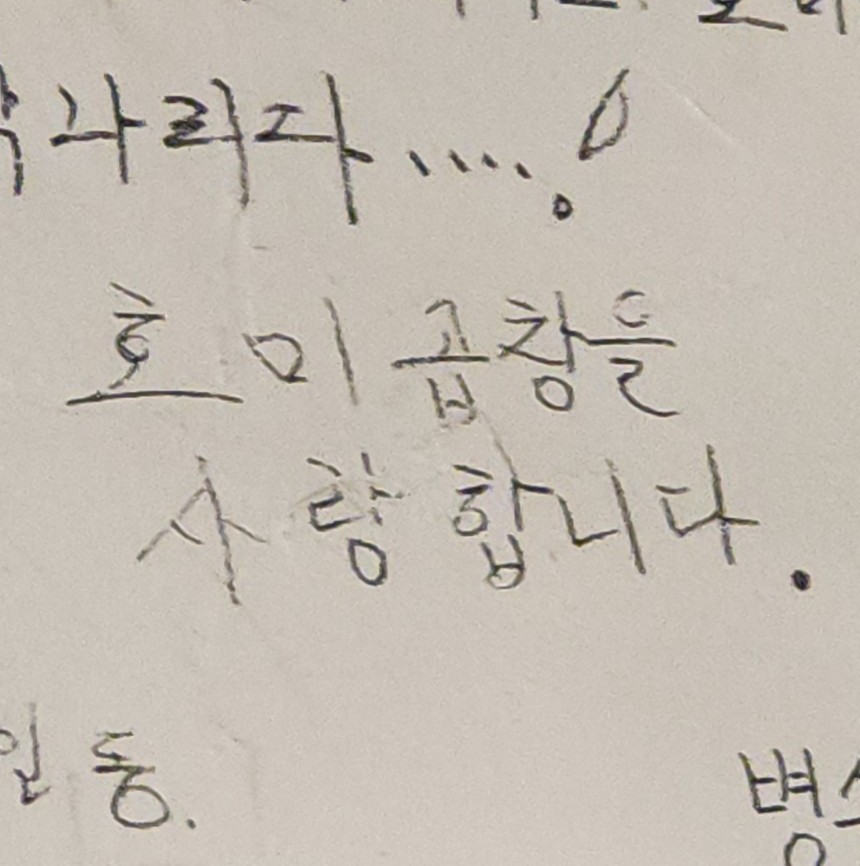 나리자....!
호미곱창을
사랑합니다.
일동.